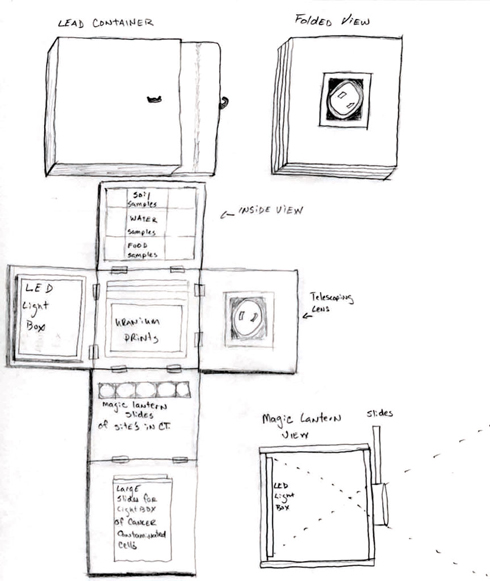 LEAD CONTAINER
FOLDED VIEW
SOIL
samples
WATER
samples
FOOD
samples
INSIDE VIEW
LED
Light
Box
URANIUM
PRINTS
Telescoping
LENS
magic lantern
slides
of sites in CT.
Magic Lantern
VIEW
slides
LED
Light
Box
LARGE
Slides for
Light BOX
of CANCER
Contaminated
Cells